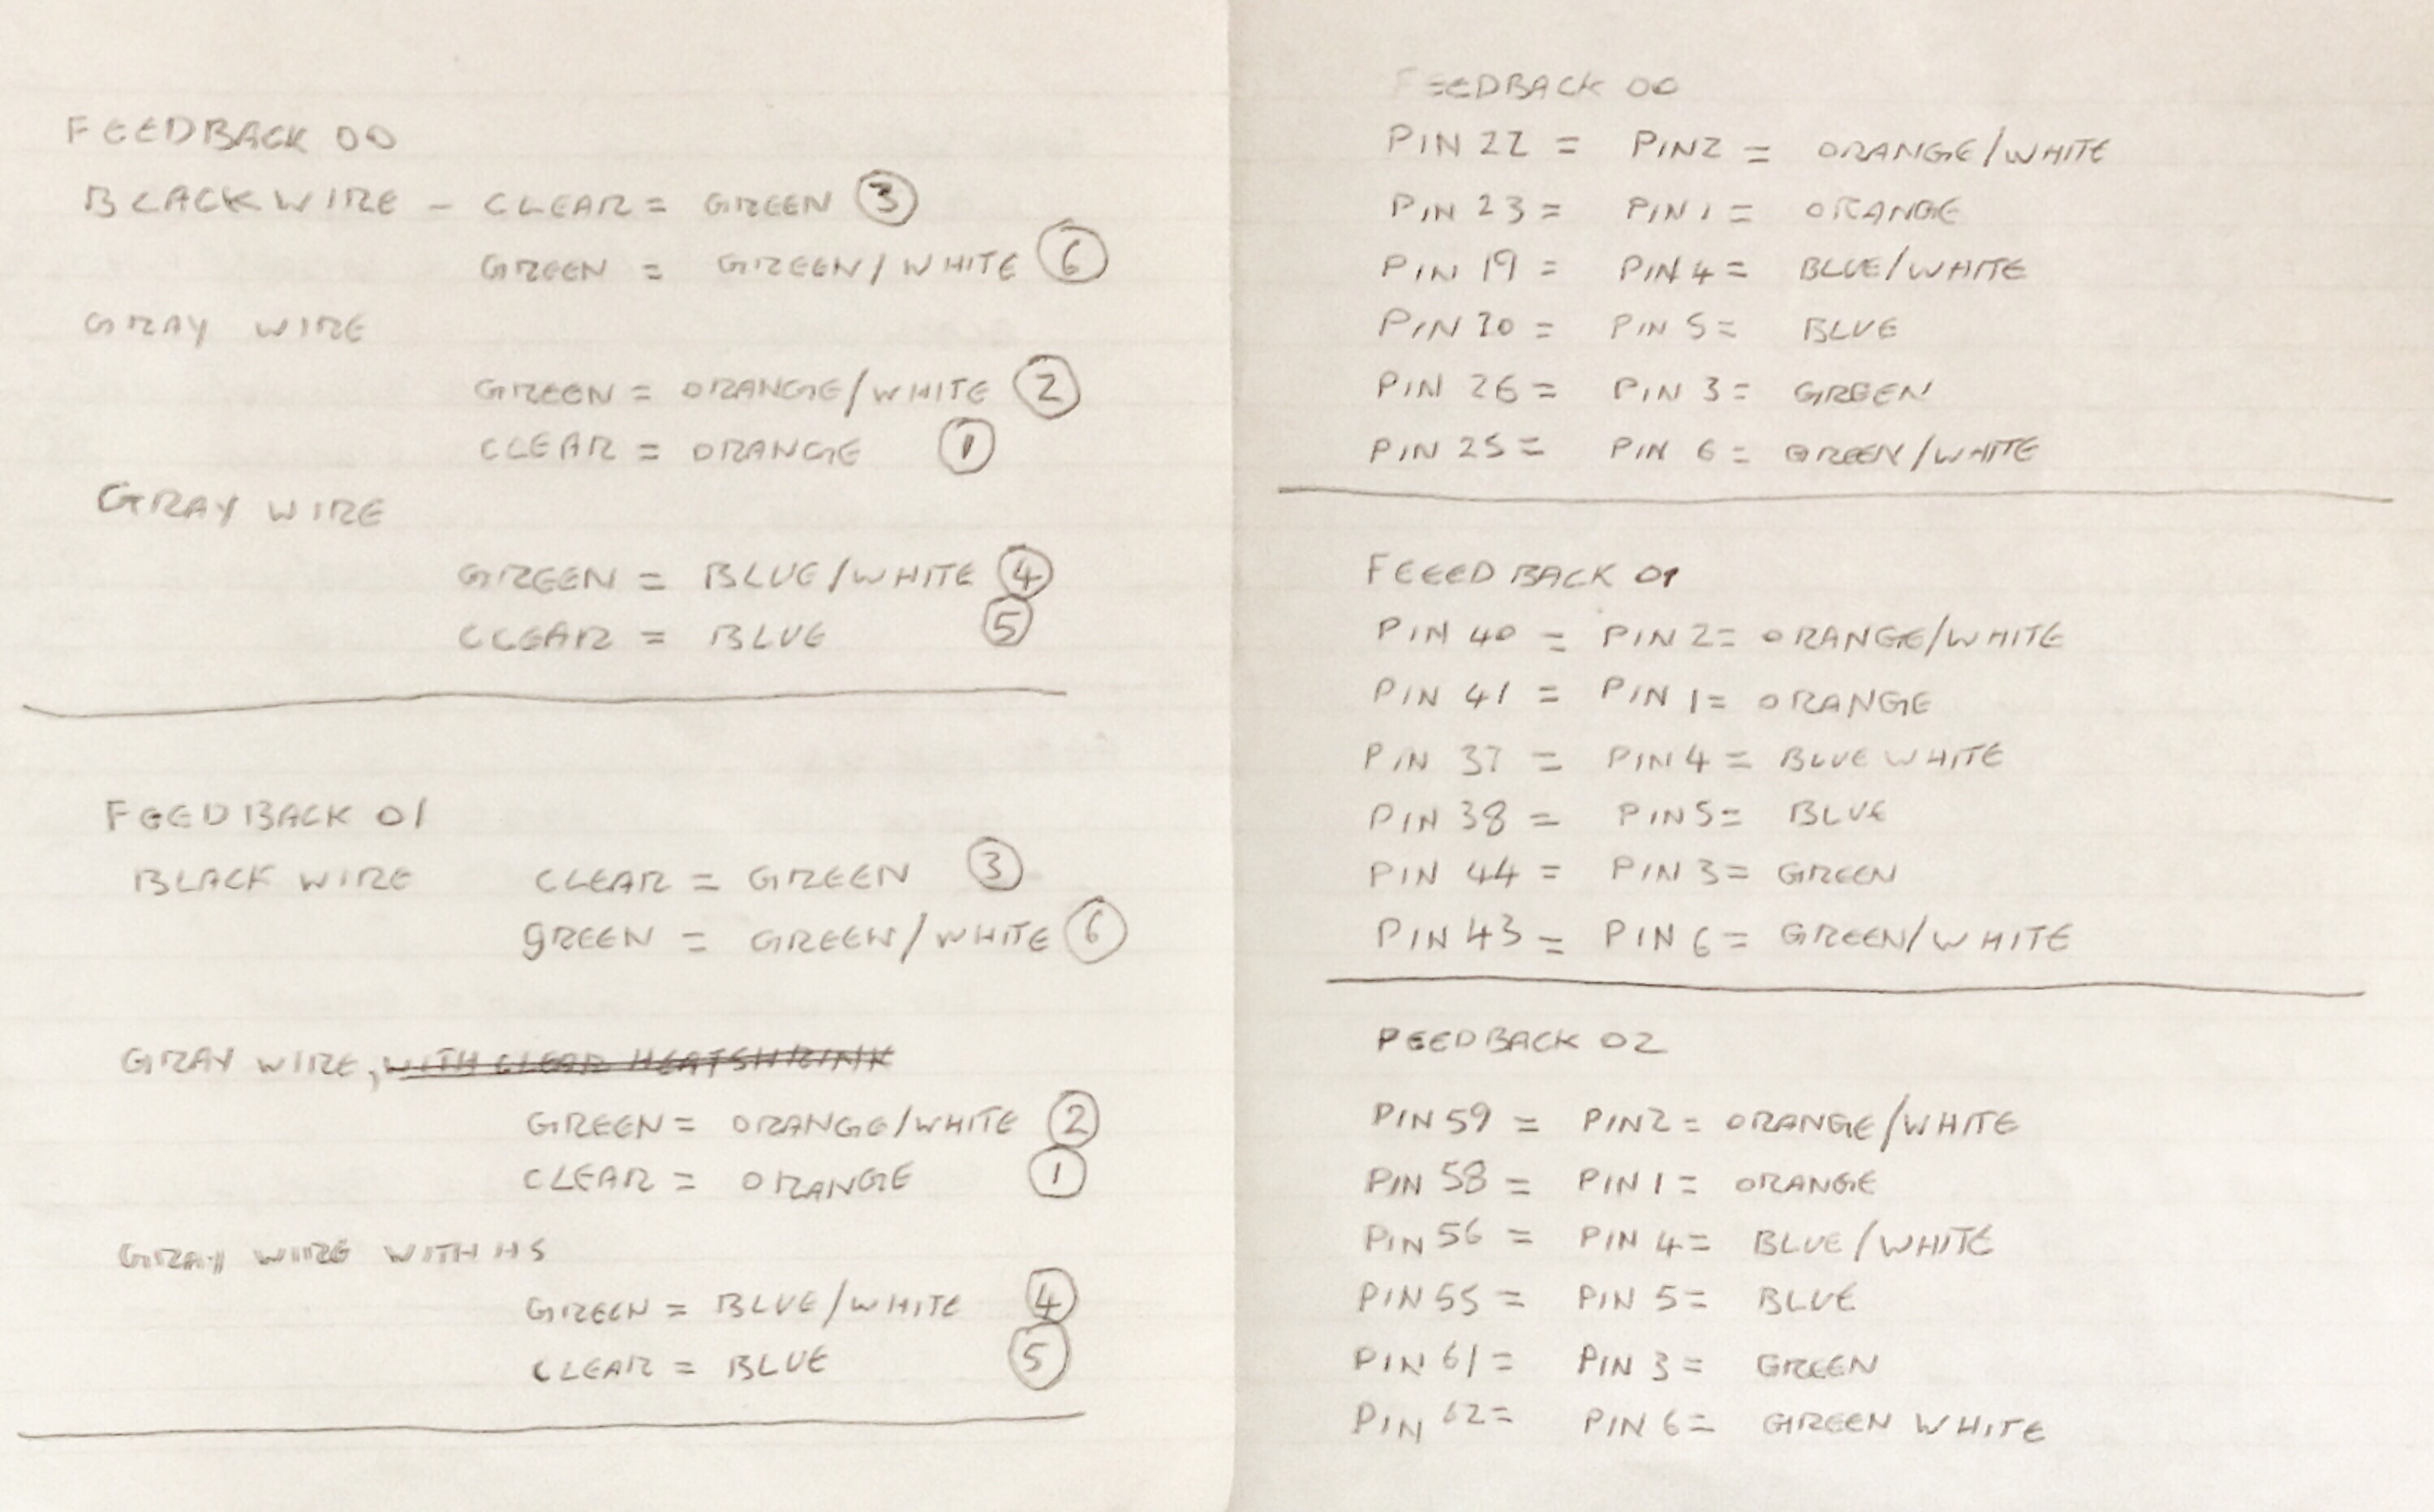 FEEDBACK 00
BLACK WIRE - CLEAR = GREEN 3
GREEN = GREEN/WHITE 6
GRAY WIRE
GREEN = ORANGE/WHITE 2
CLEAR = ORANGE 1
GRAY WIRE
GREEN = BLUE/WHITE 4
CLEAR = BLUE 5
FEEDBACK 01
BLACK WIRE CLEAR = GREEN 3
GREEN = GREEN/WHITE 6
GRAY WIRE, WITH CLEAR HEATSHRINK
GREEN = ORANGE/WHITE 2
CLEAR = ORANGE 1
GRAY WIRE WITH HS
GREEN = BLUE/WHITE 4
CLEAR = BLUE 5
FEEDBACK 00
PIN 22 = PIN 2 = ORANGE/WHITE
PIN 23 = PIN 1 = ORANGE
PIN 19 = PIN 4 = BLUE/WHITE
PIN 20 = PIN 5 = BLUE
PIN 26 = PIN 3 = GREEN
PIN 25 = PIN 6 = GREEN/WHITE
FEEEDBACK 01
PIN 40 = PIN 2 = ORANGE/WHITE
PIN 41 = PIN 1 = ORANGE
PIN 37 = PIN 4 = BLUE WHITE
PIN 38 = PIN 5 = BLUE
PIN 44 = PIN 3 = GREEN
PIN 43 = PIN 6 = GREEN/WHITE
FEEDBACK 02
PIN 59 = PIN 2 = ORANGE/WHITE
PIN 58 = PIN 1 = ORANGE
PIN 56 = PIN 4 = BLUE/WHITE
PIN 55 = PIN 5 = BLUE
PIN 61 = PIN 3 = GREEN
PIN 62 = PIN 6 = GREEN WHITE